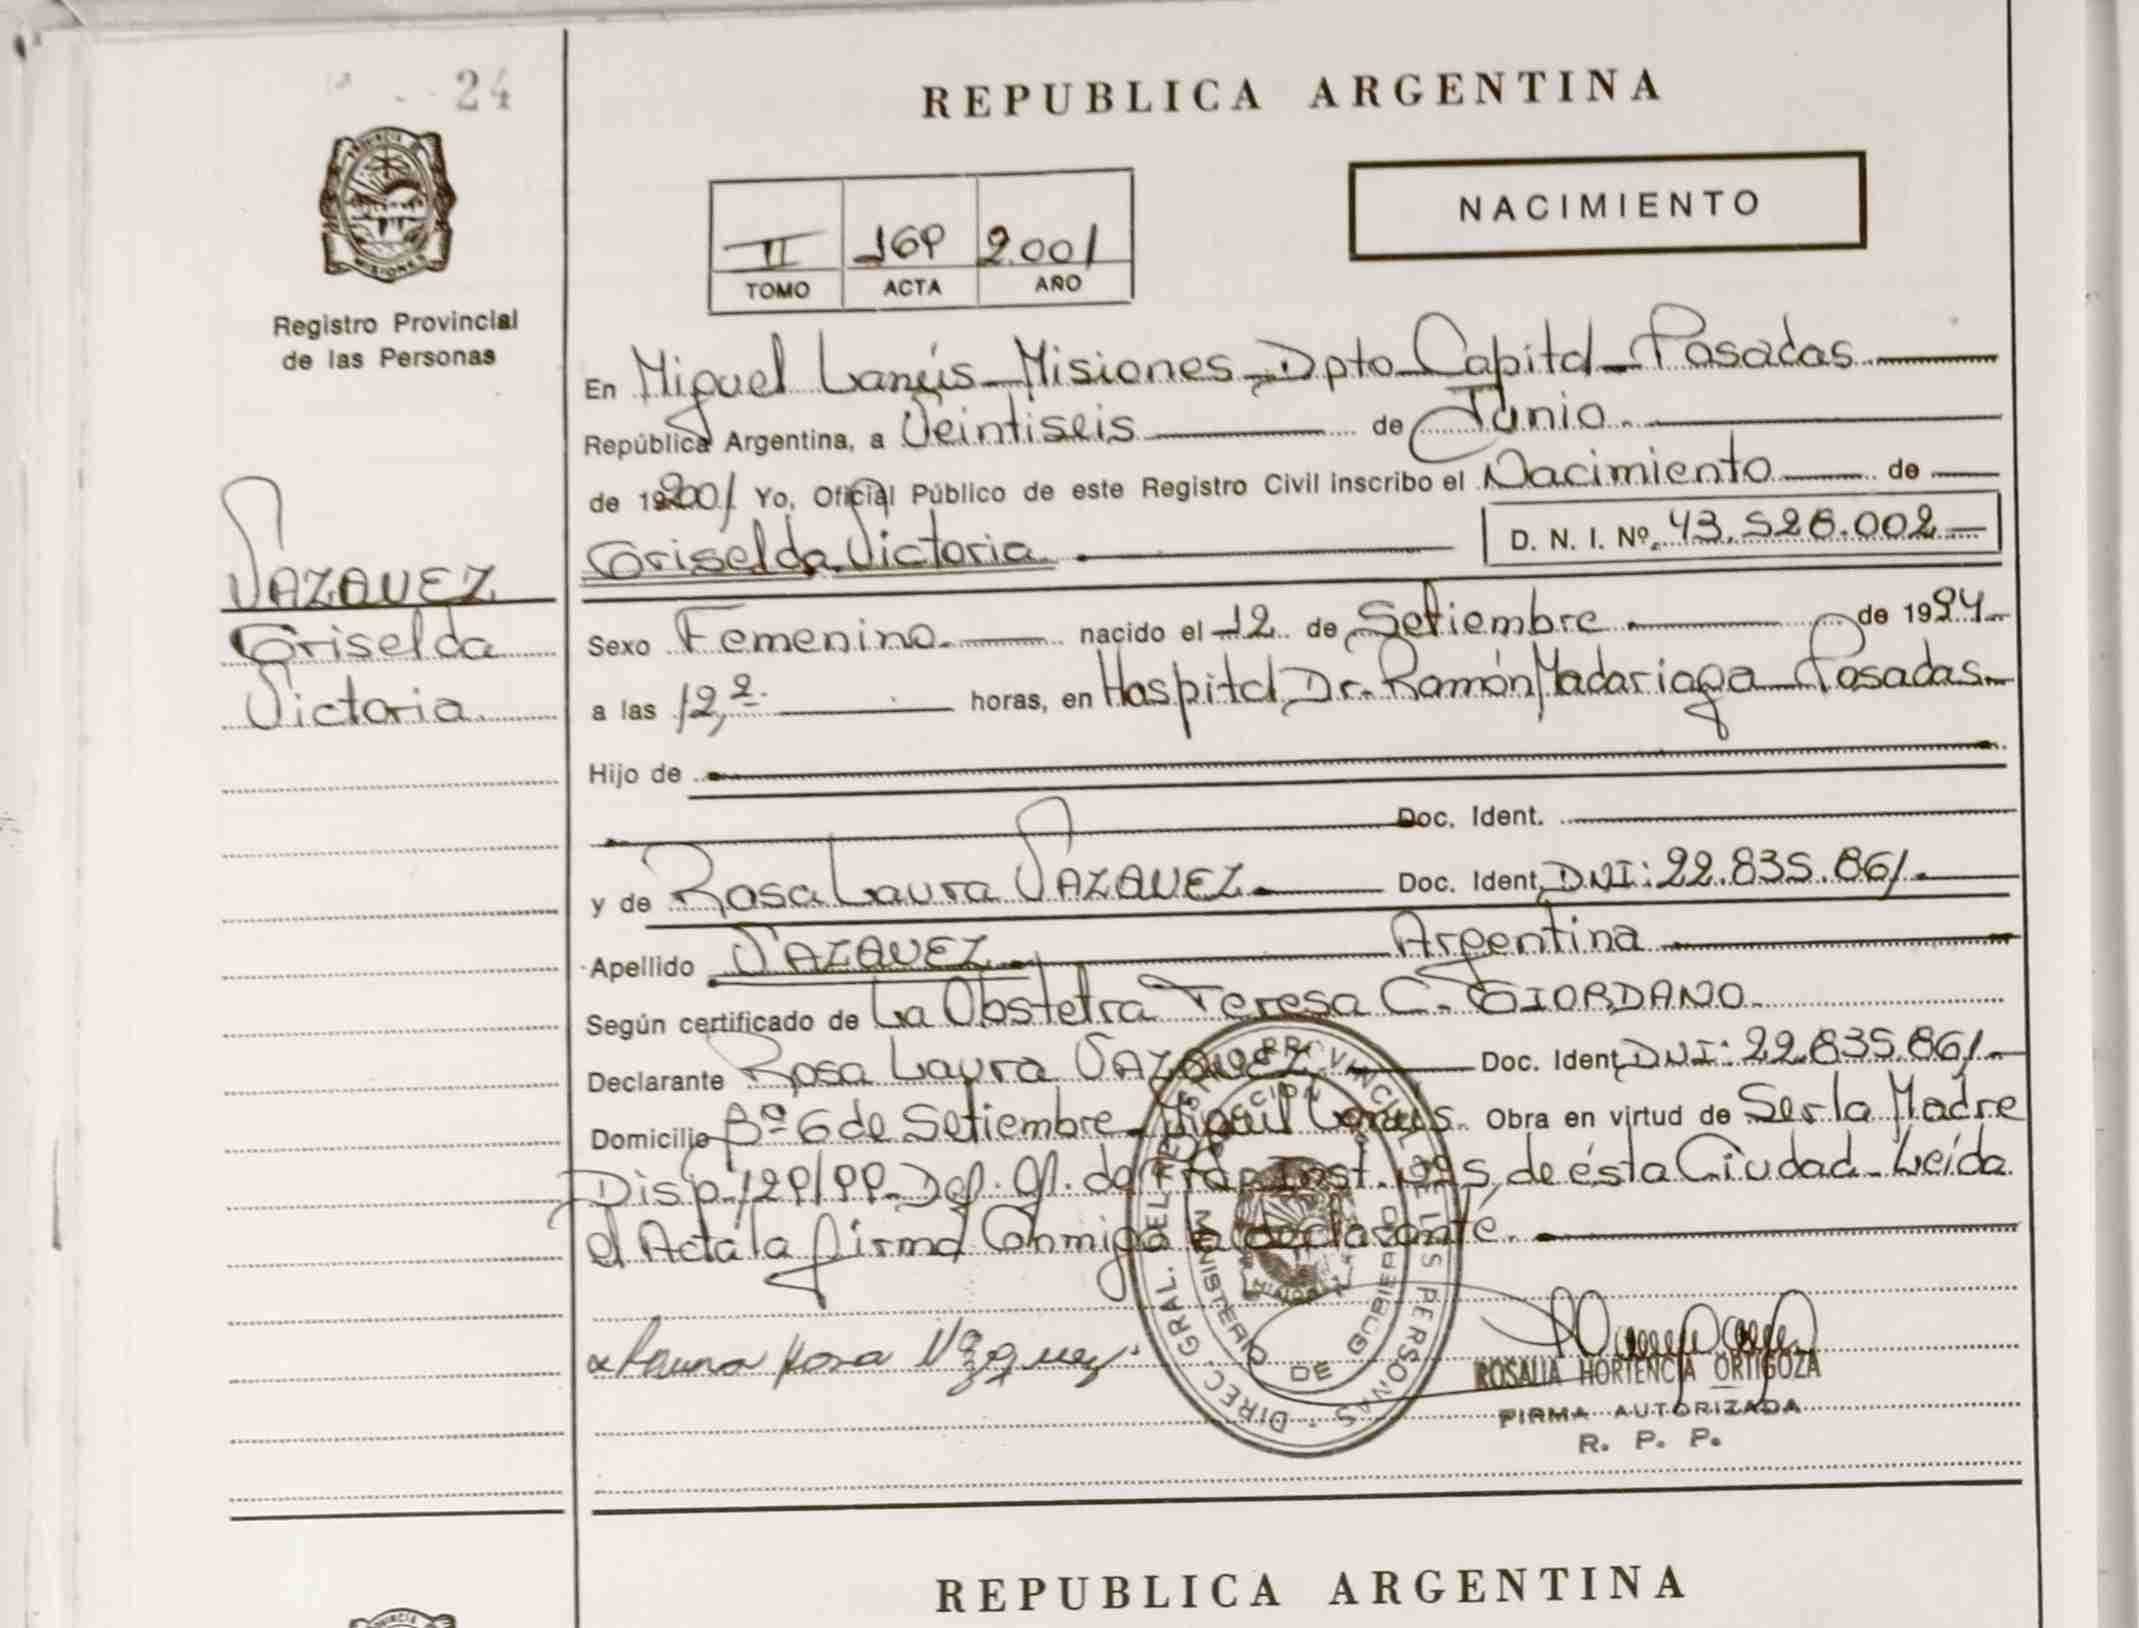 24
REPUBLICA ARGENTINA
NACIMIENTO
II 169 2.001
TOMO ACTA AÑO
Registro Provincial
de las Personas
En Miguel Lanús_Misiones_Dpto_Capital_Posadas
República Argentina, a Veintiseis de Junio
de 192001 Yo, Oficial Público de este Registro Civil inscribo el Nacimiento de
Griselda Victoria D. N. I. Nº 43.526.002
VAZQUEZ
Griselda
Victoria
Sexo Femenino nacido el 12 de Setiembre de 1994
a las 12,2 horas, en Hospital Dr. Ramón Madariaga Posadas
Hijo de
Doc. Ident.
y de Rosa Laura VAZQUEZ Doc. Ident. DNI: 22.835.861
Apellido VAZQUEZ Argentina
Según certificado de La Obstetra Teresa C. GIORDANO
Declarante Rosa Laura VAZQUEZ Doc. Ident. DNI: 22.835.861
Domicilio Bº 6 de Setiembre_Miguel Lanús. Obra en virtud de Ser la Madre
Disp. 129/99_Def. Of. de Inst. de ésta Ciudad_Leída
el Acta la firma Conmigo la declarante.
DIREC. GRAL. DEL REGISTRO PROVINCIAL DE LAS PERSONAS
MINISTERIO DE GOBIERNO
MISIONES
Laura Rosa Vazquez
ROSALIA HORTENCIA ORTIGOZA
FIRMA AUTORIZADA
R. P. P.
REPUBLICA ARGENTINA